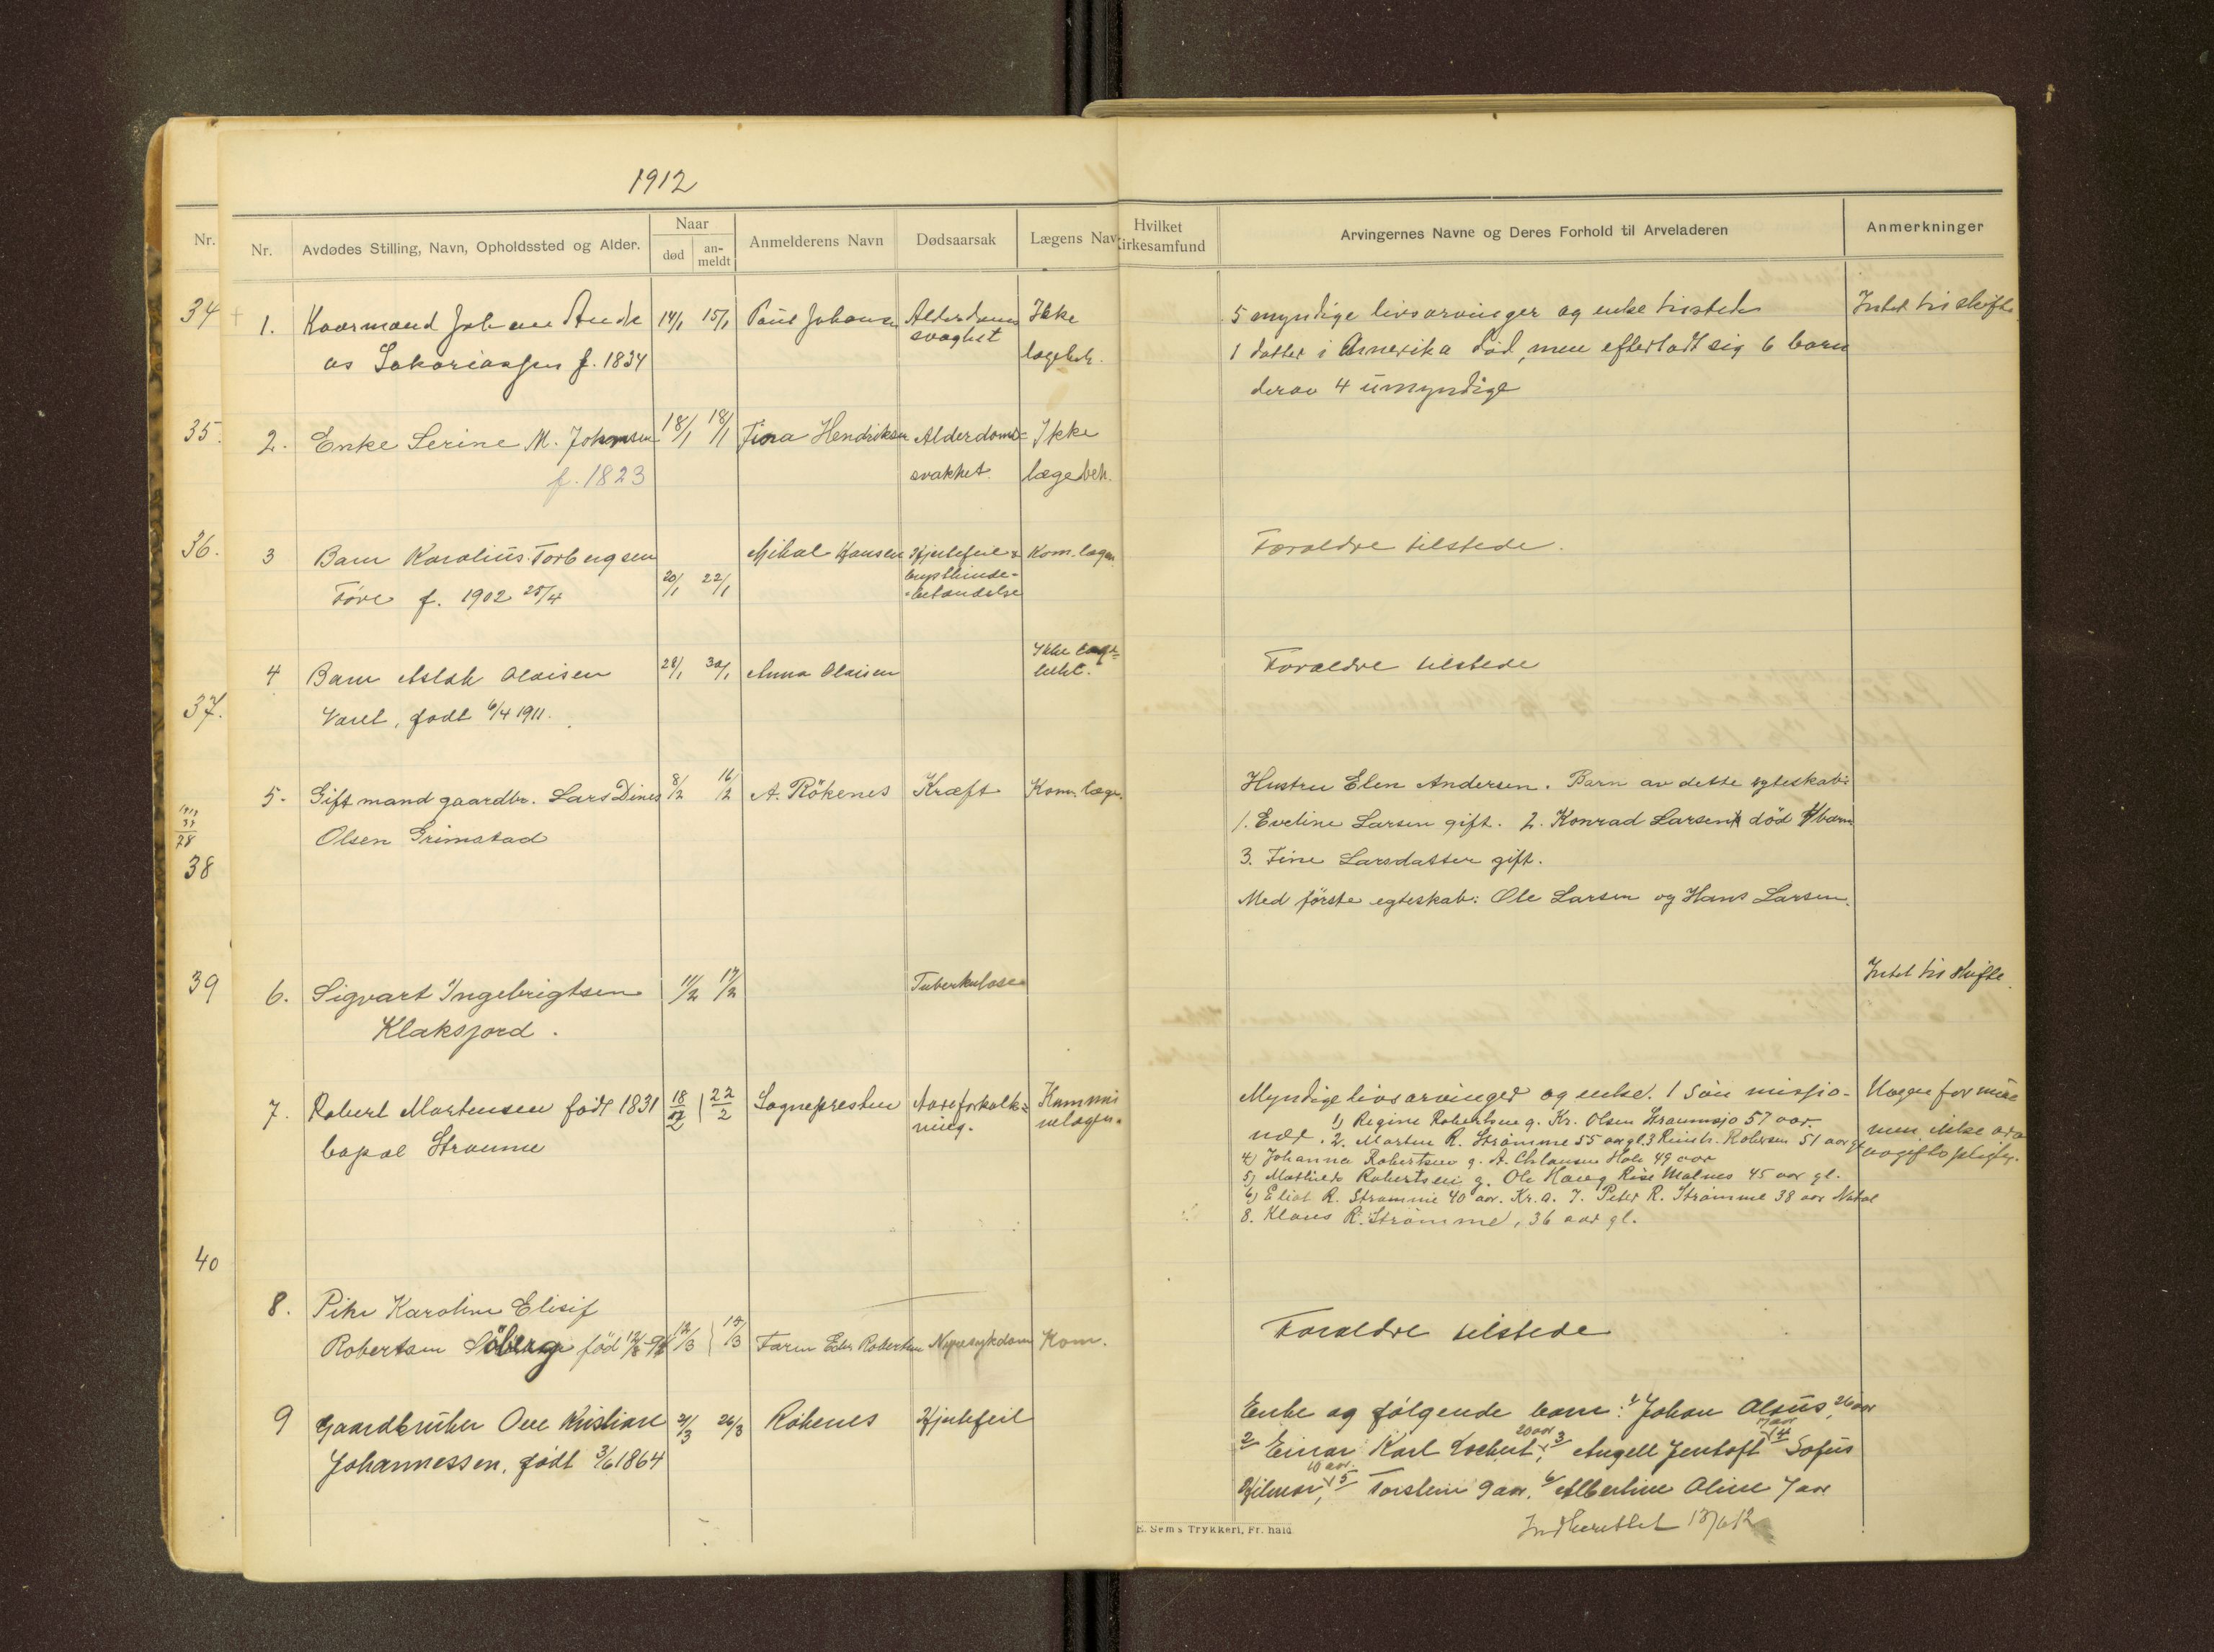 1912
Nr.
Nr.
Avdødes Stilling, Navn, Opholdssted og Alder.
Naar
død
an-
meldt
Anmelderens Navn
Dødsaarsak
Lægens Nav
Hvilket
Kirkesamfund
Arvingernes Navne og Deres Forhold til Arveladeren
Anmerkninger
34
1. Kaarmand Johan And 14/1 15/1 Paul Johansen Alderdoms Ikke
as Sakariassen f. 1834 svaghet lægebeh.
5 myndige livsarvinger og enke tilstede Intet til skifte
1 datter i Amerika død, men efterlatt sig 6 barn
derav 4 umyndige
35.
2. Enke Serine M. Johnsen 18/1 18/1 Fina Hendriksen Alderdoms= Ikke
f. 1823 svakhet. lægebeh.
36.
3 Barn Karolius Torbergsen Mikal Hansen Hjertefeil & Kom. lægen
Føre f. 1902 25/4 20/1 22/1 brysthinde-
betændelse
Forældre tilstede.
37.
4 Barn Aslak Olaisen 28/1 30/1 Anna Olaisen Ikke læge=
beh.
Varet, født 6/4 1911.
Forældre tilstede
38
5. Gift mand gaardbr. Lars Dines 8/2 16/2 A. Rökenes Kræft Kom. læge.
Olsen Grimstad
Hustru Elen Andersen. Barn av dette egteskab:
1. Eveline Larsen gift. 2. Konrad Larsen død 4 barn
3. Fine Larsdatter gift.
Med förste egteskab: Ole Larsen og Hans Larsen.
39
6. Sigvart Ingebrigtsen 11/2 17/2 Tuberkulose
Klaksjord.
Intet til skifte.
7. Robert Mortensen født 1831 18/2 22/2 Sognepresten Aareforkalk= Kommu
ning. nelægen.
kapal Straume
Myndige livsarvinger og enke. 1 sön missjo-
nær. 1) Regine Robertsen g. Kr. Olsen Straumsjø 57 aar.
2. Morten R. Strømme 55 aar gl. 3 Robertsen 51 aar gl
4) Johanna Robertsen g. A. Hole 49 aar
5) Mathilde Robertsen g. Ole Haug Rise Malnes 45 aar gl.
6) Eliot R. Strømme 40 aar. Kr.a. 7. Peter R. Strømme 38 aar Natal
8. Klaus R. Strømme, 36 aar gl.
Nogen formue
men ikke arv
avgiftspligtig.
40
8. Pike Karoline Elisif
Robertsen Söberg född 12/3 13/3 Farm Edv. Robertsen Nyresykdom Kom.
Forældre tilstede
9 Gaardbruker Ove Kristian 21/3 26/3 Rökenes Hjertefeil
Johannessen, født 3/6 1864
Enke og følgende barn: 1/ Johan Alsius, 26 aar
20 aar 17 aar
2 Einar Karl Lockert, 3 Angell Jentoft 4 Sofus
10 aar
Hilmar, 5 Torstein 9 aar. 6/ Albertine Aline 7 aar
Indberettet 13/6 12
E. Sem's Trykkeri, Fr. hald.